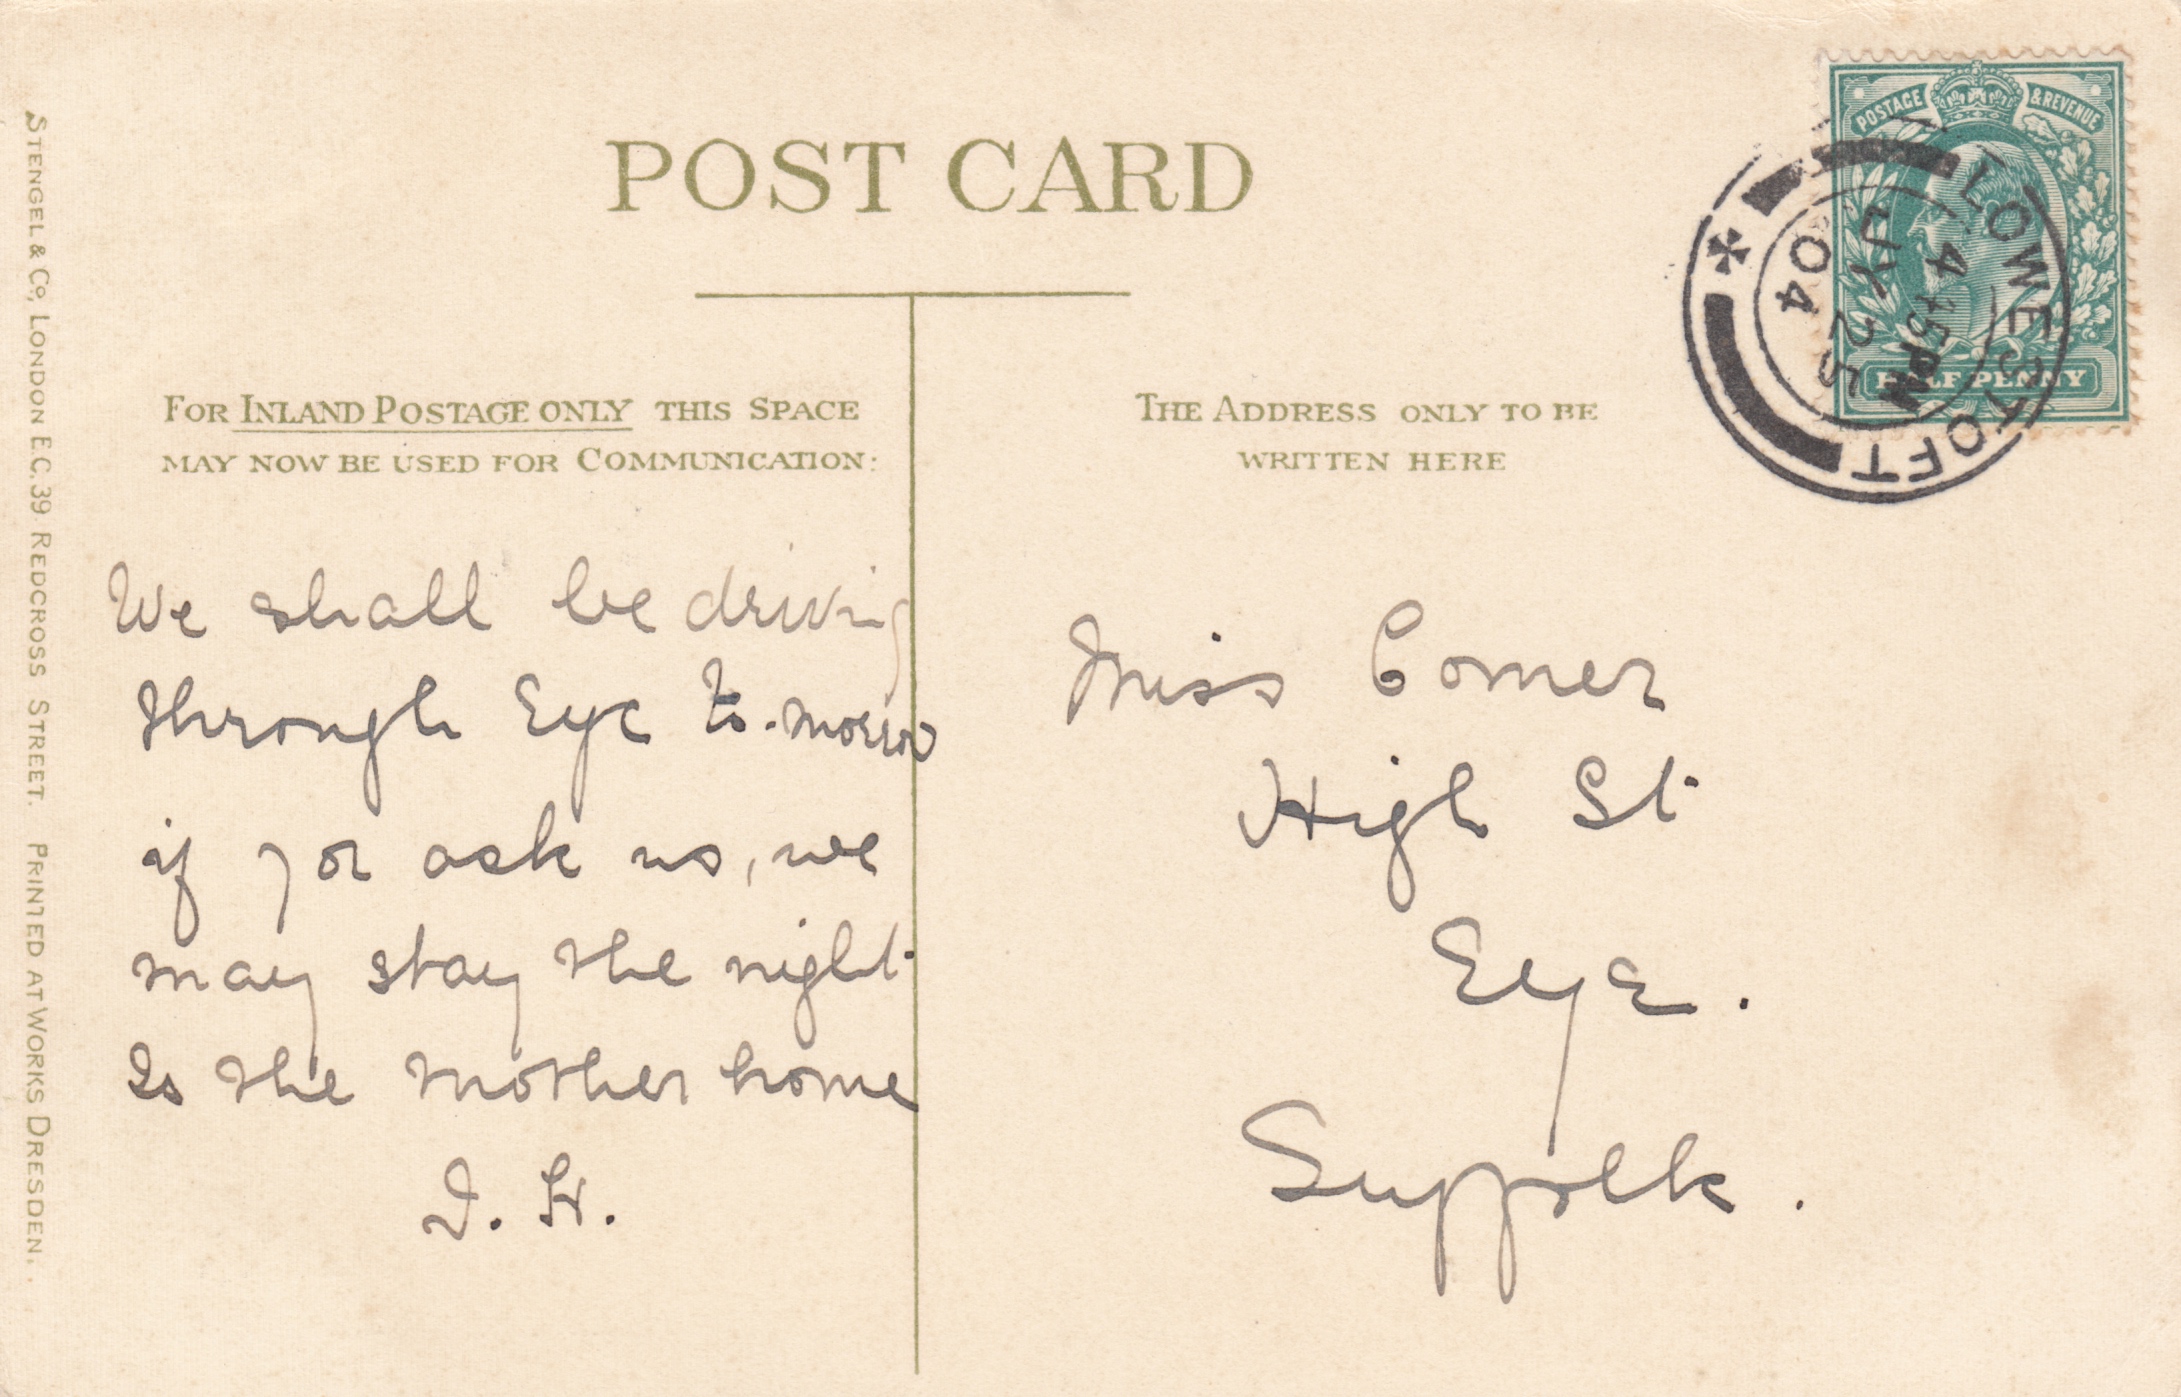 POST CARD
POSTAGE & REVENUE
HALF PENNY
LOWESTOFT
4 45 PM
JY 25
04
FOR INLAND POSTAGE ONLY THIS SPACE
MAY NOW BE USED FOR COMMUNICATION:
THE ADDRESS ONLY TO BE
WRITTEN HERE
We shall be driving
through Eye to-morrow
if you ask us, we
may stay the night
Is the mother home
D. H.
Miss Comer
High St
Eye.
Suffolk.
STENGEL & Co, LONDON E.C. 39 REDCROSS STREET. PRINTED AT WORKS DRESDEN.